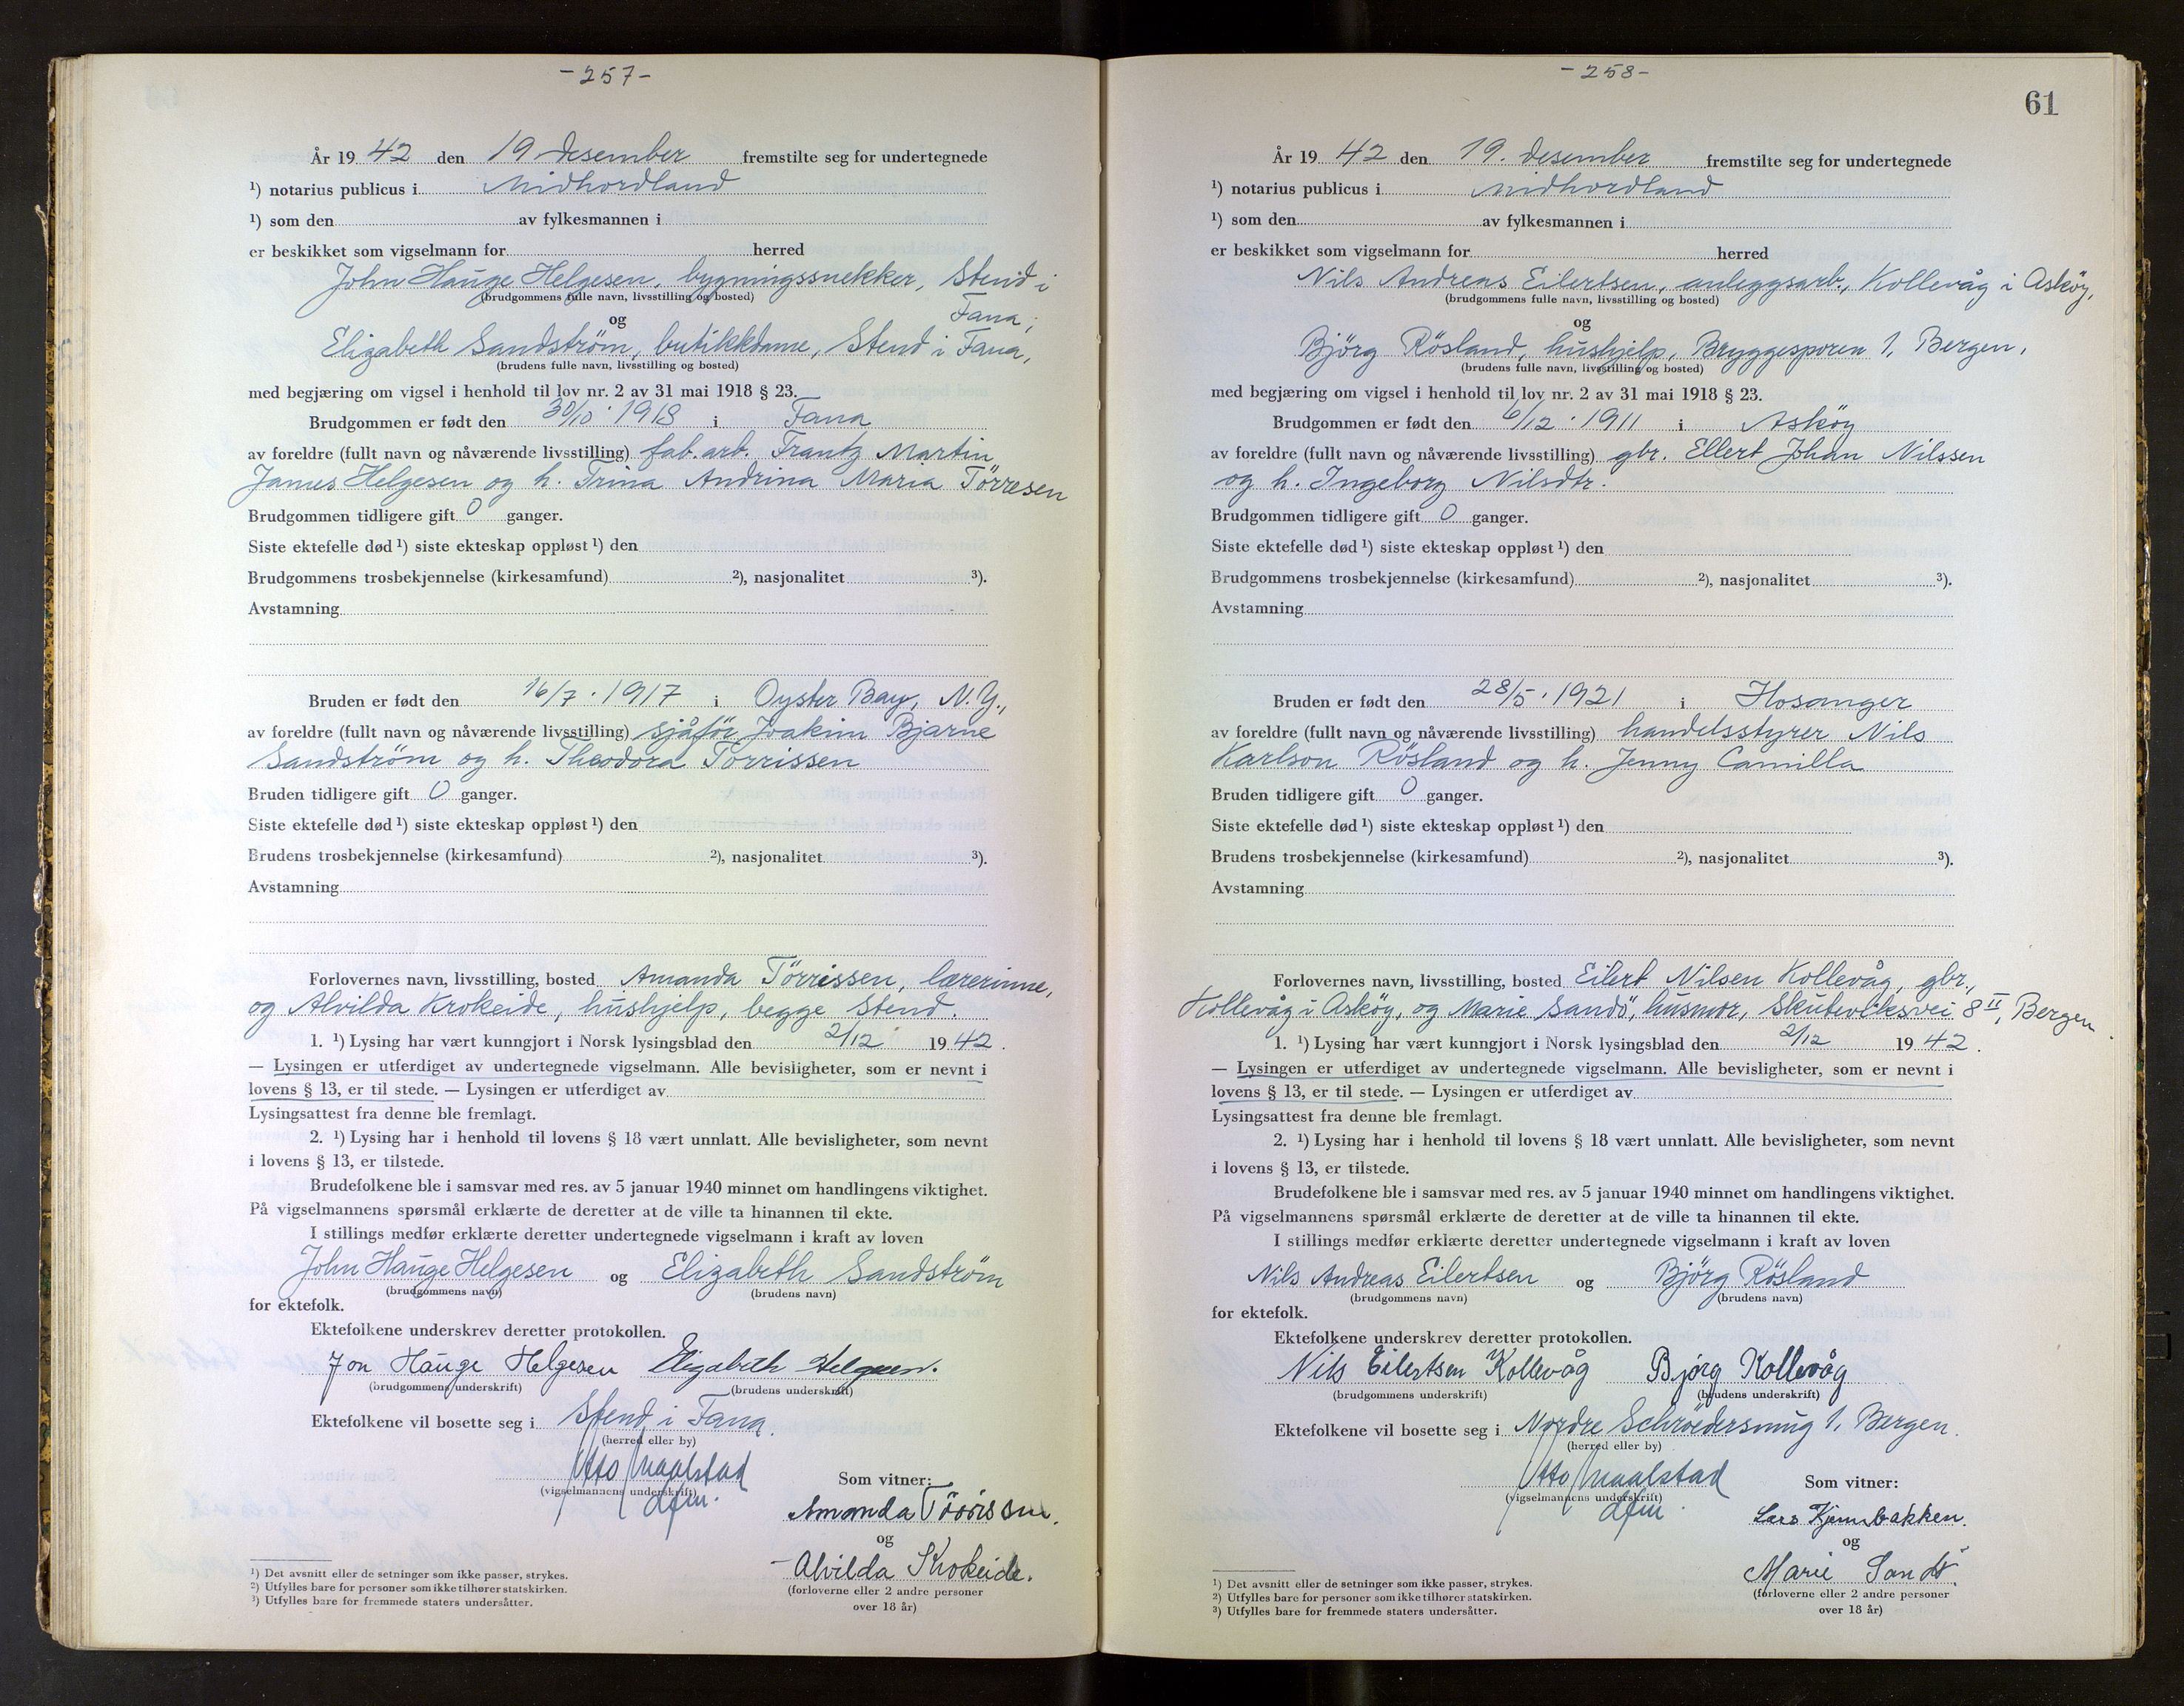 -257-
År 19 42 den 19 desember fremstilte seg for undertegnede
¹) notarius publicus i Midhordland
¹) som den av fylkesmannen i
er beskikket som vigselmann for herred
John Hauge Helgesen, bygningssnekker, Stend i
(brudgommens fulle navn, livsstilling og bosted)
Fana;
og
Elizabeth Sandstrøm, butikkdame, Stend i Fana,
(brudens fulle navn, livsstilling og bosted)
med begjæring om vigsel i henhold til lov nr. 2 av 31 mai 1918 § 23.
Brudgommen er født den 30/10 · 1918 i Fana
av foreldre (fullt navn og nåværende livsstilling) fab.arb. Frantz Martin
James Helgesen og h. Trina Andrina Maria Törresen
Brudgommen tidligere gift 0 ganger.
Siste ektefelle død ¹) siste ekteskap oppløst ¹) den
Brudgommens trosbekjennelse (kirkesamfund) ²), nasjonalitet ³).
Avstamning
Bruden er født den 16/7 · 1917 i Oyster Bay, N.Y.,
av foreldre (fullt navn og nåværende livsstilling) sjåfør Joakim Bjarne
Sandstrøm og h. Theodora Törrissen
Bruden tidligere gift 0 ganger.
Siste ektefelle død ¹) siste ekteskap oppløst ¹) den
Brudens trosbekjennelse (kirkesamfund) ²), nasjonalitet ³).
Avstamning
Forlovernes navn, livsstilling, bosted Amanda Törrissen, lærerinne,
og Alvilda Krokeide, hushjelp, begge Stend.
1. ¹) Lysing har vært kunngjort i Norsk lysingsblad den 2/12 19 42.
— Lysingen er utferdiget av undertegnede vigselmann. Alle bevisligheter, som er nevnt i
lovens § 13, er til stede. — Lysingen er utferdiget av
Lysingsattest fra denne ble fremlagt.
2. ¹) Lysing har i henhold til lovens § 18 vært unnlatt. Alle bevisligheter, som nevnt
i lovens § 13, er tilstede.
Brudefolkene ble i samsvar med res. av 5 januar 1940 minnet om handlingens viktighet.
På vigselmannens spørsmål erklærte de deretter at de ville ta hinannen til ekte.
I stillings medfør erklærte deretter undertegnede vigselmann i kraft av loven
John Hauge Helgesen og Elizabeth Sandstrøm
(brudgommens navn) (brudens navn)
for ektefolk.
Ektefolkene underskrev deretter protokollen.
Jon Hauge Helgesen Elizabeth Helgesen.
(brudgommens underskrift) (brudens underskrift)
Ektefolkene vil bosette seg i Stend i Fana.
(herred eller by)
Otto Maalstad
(vigselmannens underskrift)
dfm.
Som vitner:
Amanda Törrissen.
og
Alvilda Krokeide.
(forloverne eller 2 andre personer
over 18 år)
¹) Det avsnitt eller de setninger som ikke passer, strykes.
²) Utfylles bare for personer som ikke tilhører statskirken.
³) Utfylles bare for fremmede staters undersåtter.
-258-
61
År 19 42 den 19. desember fremstilte seg for undertegnede
¹) notarius publicus i Midhordland
¹) som den av fylkesmannen i
er beskikket som vigselmann for herred
Nils Andreas Eilertsen, anleggsarb., Kollevåg i Asköy,
(brudgommens fulle navn, livsstilling og bosted)
og
Bjørg Rösland, hushjelp, Bryggesporen 1, Bergen,
(brudens fulle navn, livsstilling og bosted)
med begjæring om vigsel i henhold til lov nr. 2 av 31 mai 1918 § 23.
Brudgommen er født den 6/12 · 1911 i Asköy
av foreldre (fullt navn og nåværende livsstilling) gbr. Ellert Johan Nilssen
og h. Ingeborg Nilsdtr.
Brudgommen tidligere gift 0 ganger.
Siste ektefelle død ¹) siste ekteskap oppløst ¹) den
Brudgommens trosbekjennelse (kirkesamfund) ²), nasjonalitet ³).
Avstamning
Bruden er født den 28/5 · 1921 i Hosanger
av foreldre (fullt navn og nåværende livsstilling) handelsstyrer Nils
Karlson Rösland og h. Jenny Camilla
Bruden tidligere gift 0 ganger.
Siste ektefelle død ¹) siste ekteskap oppløst ¹) den
Brudens trosbekjennelse (kirkesamfund) ²), nasjonalitet ³).
Avstamning
Forlovernes navn, livsstilling, bosted Eilert Nilsen Kollevåg, gbr.,
Kollevåg i Asköy, og Marie Sandö, husmor, Skuteviksvei 8 II, Bergen
1. ¹) Lysing har vært kunngjort i Norsk lysingsblad den 2/12 19 42.
— Lysingen er utferdiget av undertegnede vigselmann. Alle bevisligheter, som er nevnt i
lovens § 13, er til stede. — Lysingen er utferdiget av
Lysingsattest fra denne ble fremlagt.
2. ¹) Lysing har i henhold til lovens § 18 vært unnlatt. Alle bevisligheter, som nevnt
i lovens § 13, er tilstede.
Brudefolkene ble i samsvar med res. av 5 januar 1940 minnet om handlingens viktighet.
På vigselmannens spørsmål erklærte de deretter at de ville ta hinannen til ekte.
I stillings medfør erklærte deretter undertegnede vigselmann i kraft av loven
Nils Andreas Eilertsen og Bjørg Rösland
(brudgommens navn) (brudens navn)
for ektefolk.
Ektefolkene underskrev deretter protokollen.
Nils Eilertsen Kollevåg Bjørg Kollevåg
(brudgommens underskrift) (brudens underskrift)
Ektefolkene vil bosette seg i Nordre Schröedersmug 1, Bergen.
(herred eller by)
Otto Maalstad
(vigselmannens underskrift)
dfm
Som vitner:
Lars
og
Marie Sandö.
(forloverne eller 2 andre personer
over 18 år)
¹) Det avsnitt eller de setninger som ikke passer, strykes.
²) Utfylles bare for personer som ikke tilhører statskirken.
³) Utfylles bare for fremmede staters undersåtter.